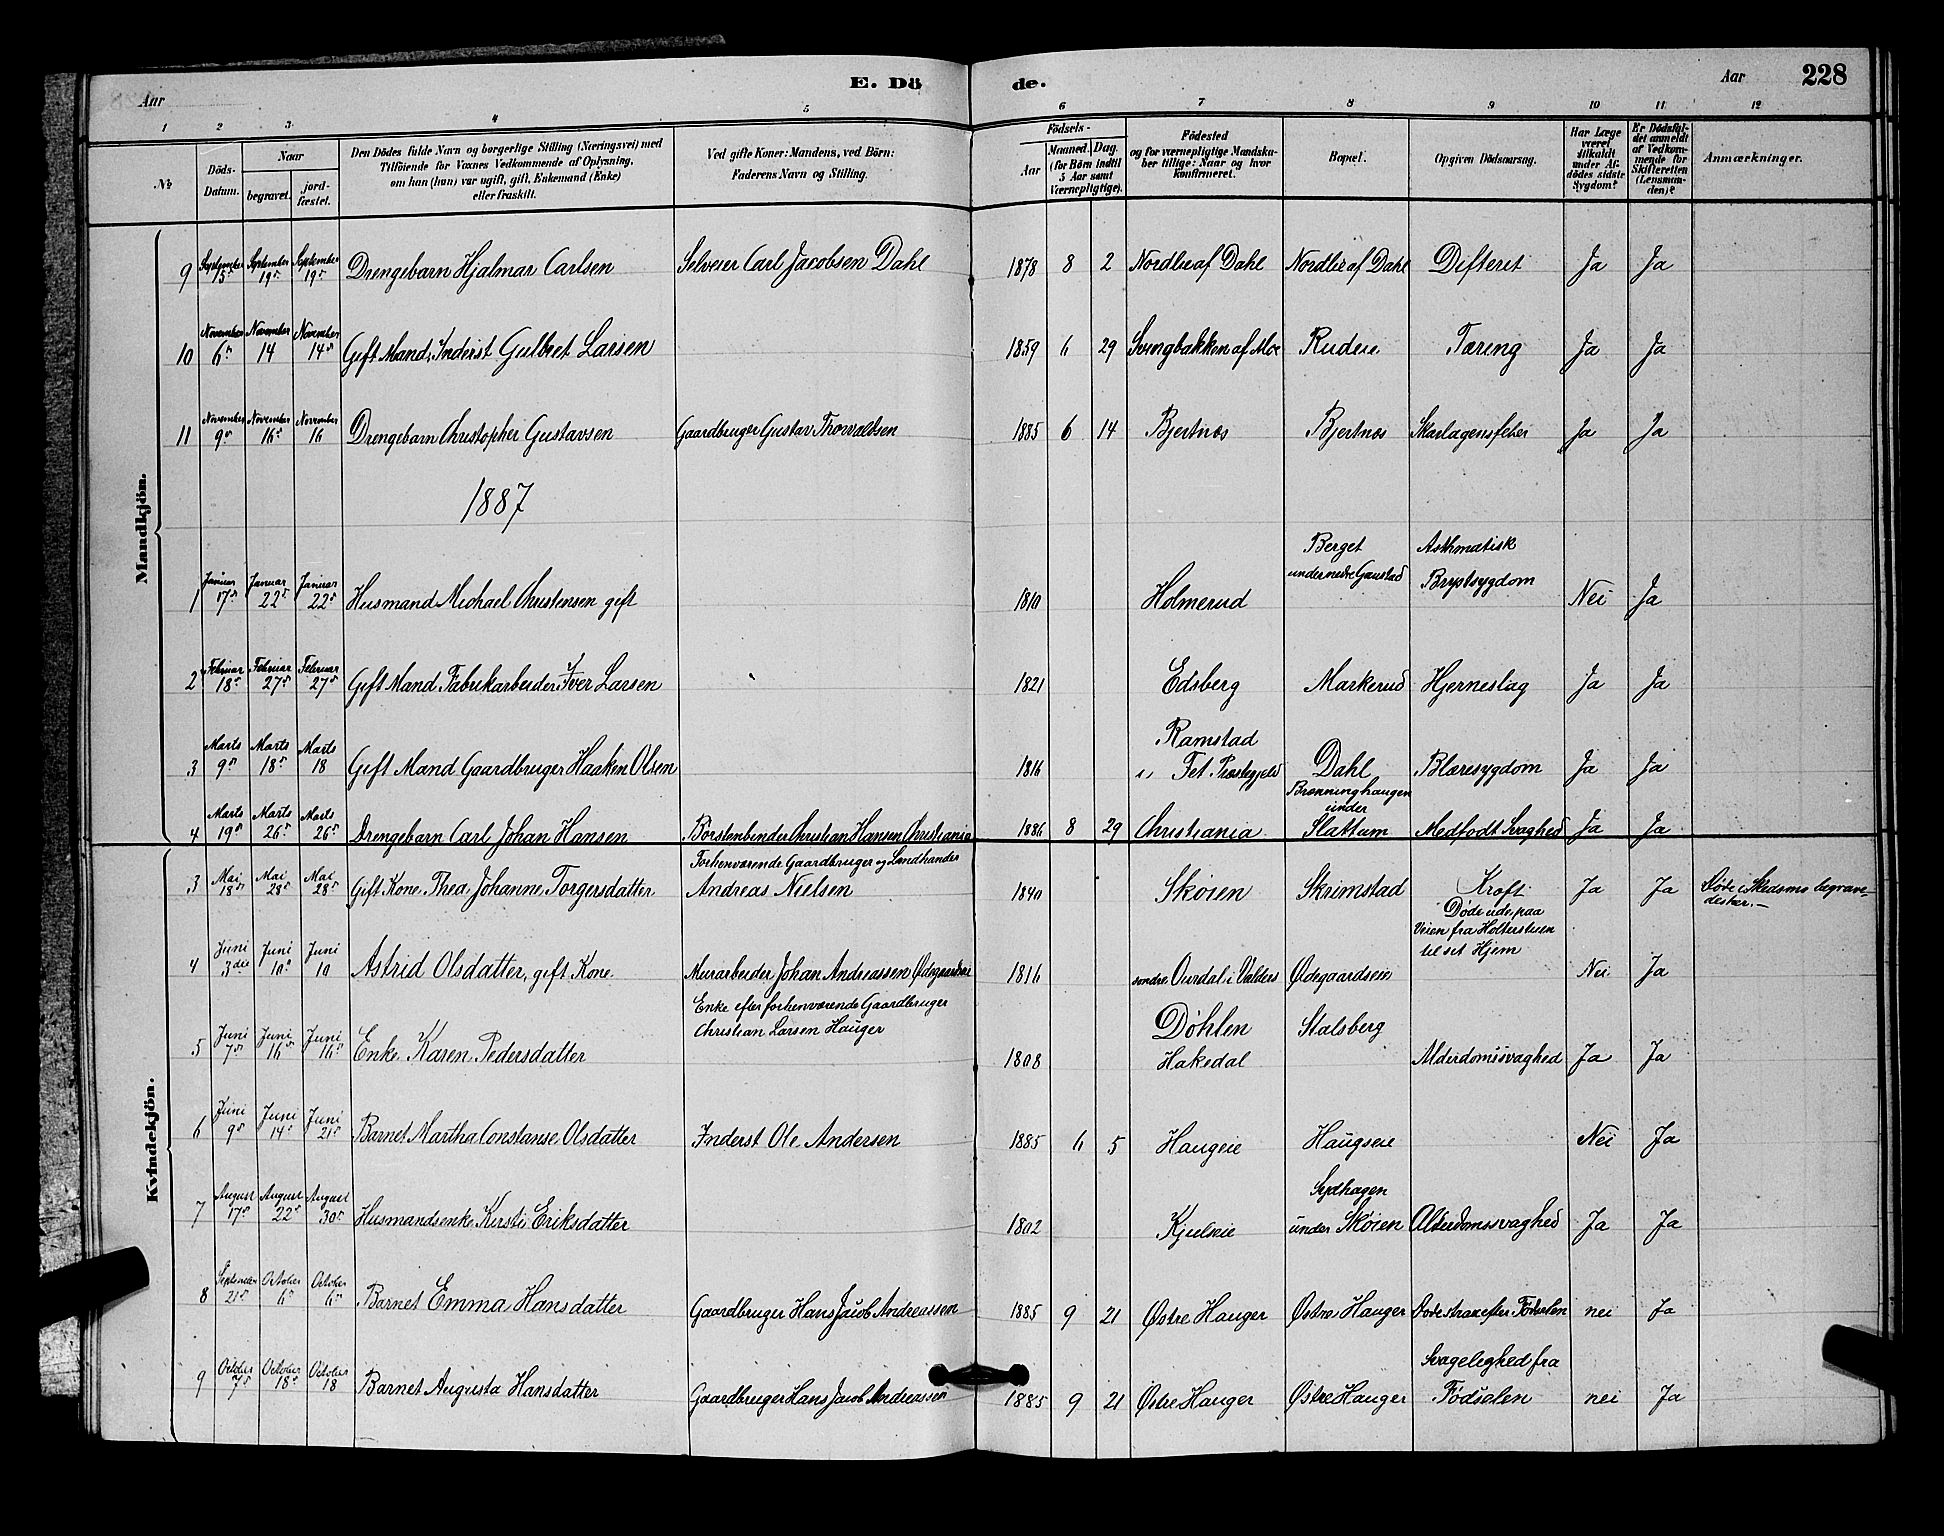 Aar
E. Dö
de.
Aar
228
1 2 3 4 5 6 7 8 9 10 11 12
№
Döds-
Datum.
Naar
begravet.
jord-
fæstet.
Den Dödes fulde Navn og borgerlige Stilling (Næringsvei) med
Tilföiende for Voxnes Vedkommende af Oplysning,
om han (hun) var ugift, gift, Enkemand (Enke)
eller fraskilt.
Ved gifte Koner: Mandens, ved Börn:
Faderens Navn og Stilling.
Födsels-
Aar
Maaned. Dag.
(for Börn indtil
5 Aar samt
Værnepligtige).
Födested
og for værnepligtige Mandska-
ber tillige: Naar og hvor
konfirmeret.
Bopæl.
Opgiven Dödsaarsag.
Har Læge
været
tilkaldt
under Af-
dödes sidste
Sygdom?
Er Dödsfal-
det anmeldt
af Vedkom-
mende for
Skifteretten
(Lensman-
den)?
Anmærkninger.
Mandkjön.
9 September 15 September 19 September 19 Drengebarn Hjalmar Carlsen Selveier Carl Jacobsen Dahl 1878 8 2 Nordlie af Dahl Nordlie af Dahl Difterit Ja Ja
10 November 6 November 14 November 14 Gift Mand, Inderst Gulbret Larsen 1859 6 29 Svingbakken af Moe Rudeie Tæring Ja Ja
11 November 9 November 16 November 16 Drengebarn Christopher Gustavsen Gaardbruger Gustav Thorvaldsen 1885 6 14 Bjertnæs Bjertnæs Skarlagensfeber Ja Ja
1887
Berget Asthmatisk
under nedre Gaustad Brystsygdom
1 Januar 17 Januar 22 Januar 22 Husmand Michael Christensen gift 1810 Holmerud Nei Ja
2 Februar 18 Februar 27 Februar 27 Gift Mand Fabrikarbeider Iver Larsen 1821 Edsberg Markerud Hjerneslag Ja Ja
Ramstad
3 Marts 9 Marts 18 Marts 18 Gift Mand Gaardbruger Haaken Olsen 1816 i Fet Præstegjeld Dahl Blæresygdom Ja Ja
Brænninghaugen
under
4 Marts 19 Marts 26 Marts 26 Drengebarn Carl Johan Hansen Børstenbinder Christian Hansen Christiania 1886 8 29 Christiania Slattum Medfødt Svaghed Ja Ja
Kvindekjön.
Forhenværende Gaardbruger og Landhandler
3 Mai 18 Mai 28 Mai 28 Gift Kone Thea Johanne Torgersdatter Andreas Nielsen 1840 Skøien Skrimstad Kræft Ja Ja Døde i Skedsmo begrave-
des her.
Døde ude paa
Veien fra
til sit Hjem
4 Juni 3die Juni 10 Juni 10 Astrid Olsdatter, gift Kone Murarbeider Johan Andreassen Ødegaardseie 1816 søndre Aurdal i Valders Ødegaardseie Nei Ja
Enke efter forhenværende Gaardbruger
Christian Larsen Hauger Døhlen Stalsberg
5 Juni 7 Juni 16 Juni 16 Enke Karen Pedersdatter 1808 Hakedal Alderdomssvaghed Ja Ja
6 Juni 9 Juni 14 Juni 21 Barnet Martha Constanse Olsdatter Inderst Ole Andersen 1885 6 5 Haugeie Haugseie Nei Ja
Sydhagen
7 August 17 August 22 August 30 Husmandsenke Kirsti Eriksdatter 1802 Kjulseie under Skøien Alderdomssvaghed Ja Ja
8 September 21 October 6 October 6 Barnet Emma Hansdatter Gaardbruger Hans Jacob Andreassen 1885 9 21 Østre Hauger Østre Hauger Døde strax efter Fødselen nei Ja
Svagelighed fra
9 October 7 October 18 October 18 Barnet Augusta Hansdatter Gaardbruger Hans Jacob Andreassen 1885 9 21 Østre Hauger Østre Hauger Fødselen nei Ja